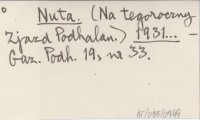 Nuta. (Na tegoroczny
Zjazd Podhalan.) 1931... –
Gaz. Podh. 19, nr 33.